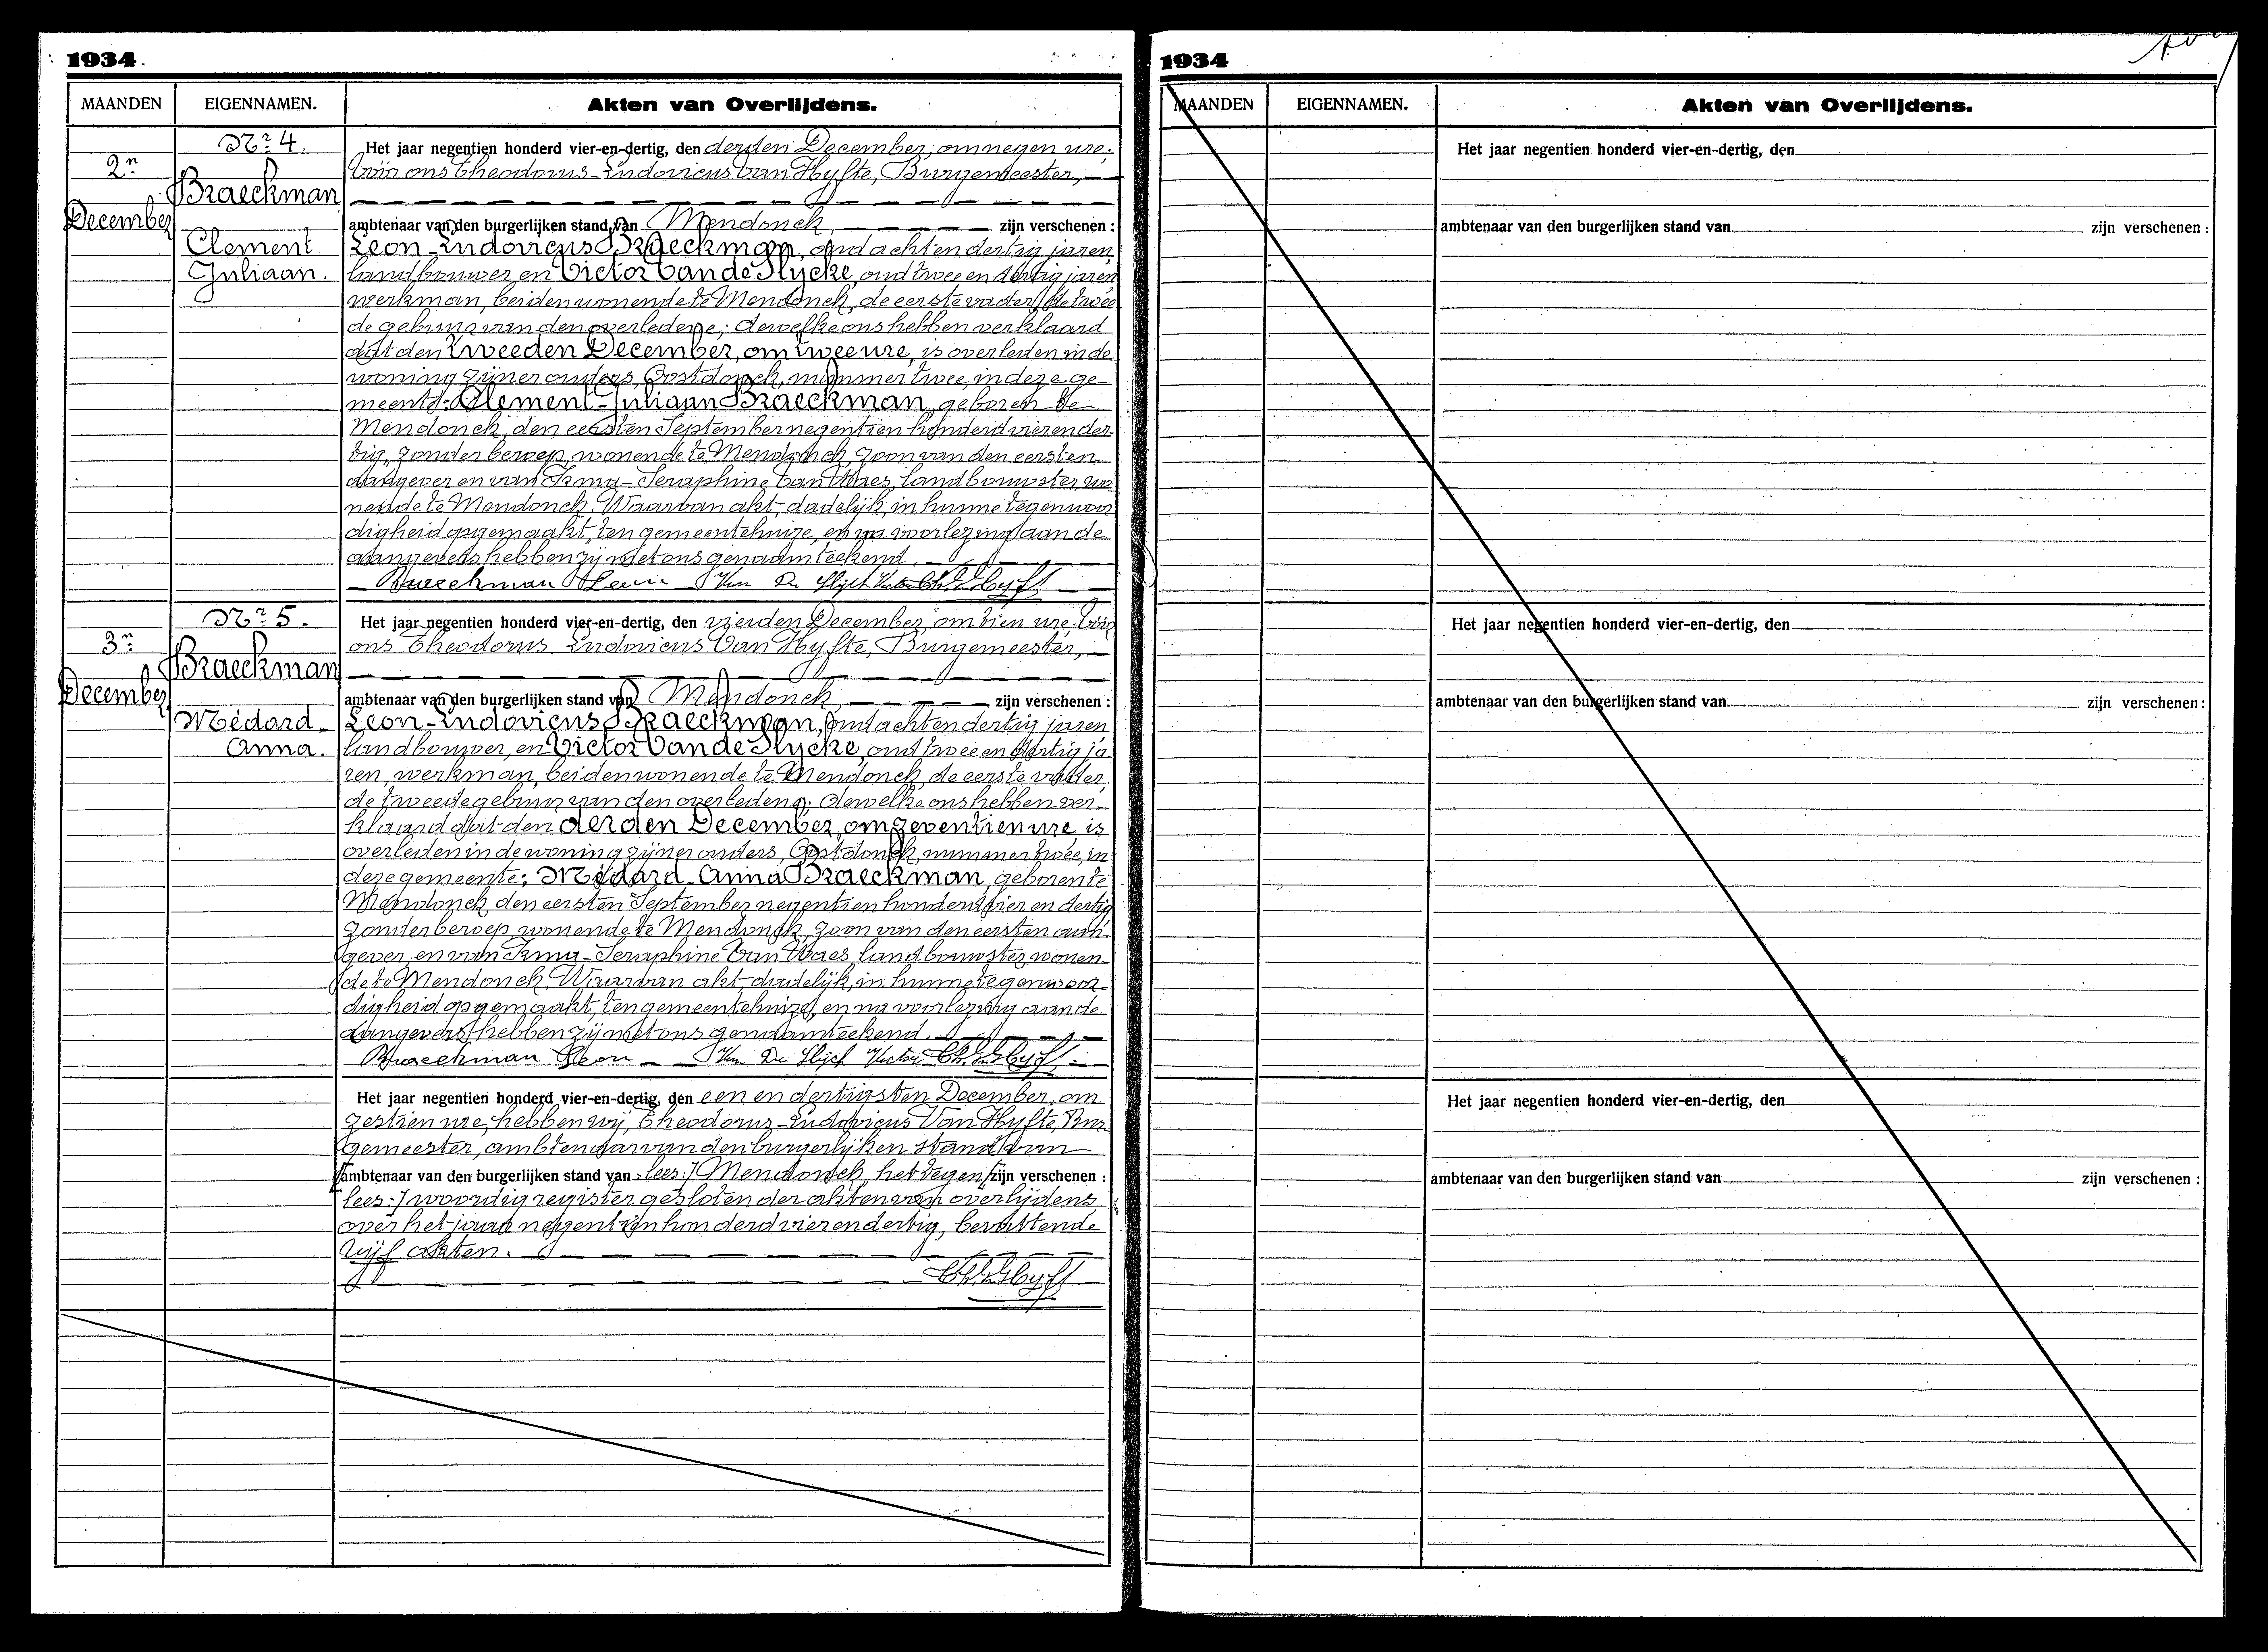 1934
MAANDEN
EIGENNAMEN.
Akten van Overlijdens.
2n
December
Nr 4.
Braeckman
Clement
Juliaan.
Het jaar negentien honderd vier-en-dertig, den derden December, om negen ure.
Vóór ons Theodorus-Ludovicus Van Hyfte, Burgemeester,
ambtenaar van den burgerlijken stand van Mendonck, zijn verschenen :
Leon-Ludovicus Braeckman, oud achtendertig jaren,
landbouwer, en Victor Van de Slycke, oud twee en dertig jaren,
werkman, beiden wonende te Mendonck, de eerste vader, de twee
de gebuur van den overledene; dewelke ons hebben verklaard
dat den tweeden December, om twee ure, is overleden in de
woning zijner ouders, Oostdonck, nummer twee, in deze ge-
meente: Clement-Juliaan Braeckman, geboren te
Mendonck, den eersten September negentien honderd vier en der-
tig, zonder beroep, wonende te Mendonck, zoon van den eersten
aangever en van Irma-Seraphine Van Waes, landbouwster, wo-
nende te Mendonck. Waarvan akt, dadelijk, in hunne tegenwoor
digheid opgemaakt, ten gemeentehuize, en na voorlezing aan de
aangevers hebben zij met ons genaamteekend.
Braeckman Leon Van De Slijck Victor Th. Van Hyfte
3n
December
Nr 5.
Braeckman
Médard-
Anna.
Het jaar negentien honderd vier-en-dertig, den vierden December, om tien ure. Vóór
ons Theodorus-Ludovicus Van Hyfte, Burgemeester,
ambtenaar van den burgerlijken stand van Mendonck, zijn verschenen :
Leon-Ludovicus Braeckman, oud achtendertig jaren,
landbouwer, en Victor Van de Slycke, oud twee en dertig ja-
ren, werkman, beiden wonende te Mendonck, de eerste vader,
de tweede gebuur van den overledene; dewelke ons hebben ver-
klaard dat den derden December, om zeventien ure, is
overleden in de woning zijner ouders, Oostdonck, nummer twee, in
deze gemeente: Médard-Anna Braeckman, geboren te
Mendonck, den eersten September negentien honderd vier en dertig,
zonder beroep, wonende te Mendonck, zoon van den eersten aan-
gever, en van Irma-Seraphine Van Waes, landbouwster, wonen-
de te Mendonck. Waarvan akt, dadelijk, in hunne tegenwoor-
digheid opgemaakt, ten gemeentehuize, en na voorlezing aan de
aangevers hebben zij met ons genaamteekend.
Braeckman Leon Van De Slijck Victor Th. Van Hyfte
Het jaar negentien honderd vier-en-dertig, den een en dertigsten December, om
zestien ure, hebben wij, Theodorus-Ludovicus Van Hyfte, Bur-
gemeester, ambtenaar van den burgerlijken stand van
[ambtenaar van den burgerlijken stand van - lees:] Mendonck, het tegen [zijn verschenen :
lees:] woordig register gesloten der akten van overlijdens
over het jaar negentien honderd vier en dertig, bevattende
vijf akten.
Th. Van Hyfte
1934
MAANDEN
EIGENNAMEN.
Akten van Overlijdens.
Het jaar negentien honderd vier-en-dertig, den
ambtenaar van den burgerlijken stand van zijn verschenen :
Het jaar negentien honderd vier-en-dertig, den
ambtenaar van den burgerlijken stand van zijn verschenen :
Het jaar negentien honderd vier-en-dertig, den
ambtenaar van den burgerlijken stand van zijn verschenen :